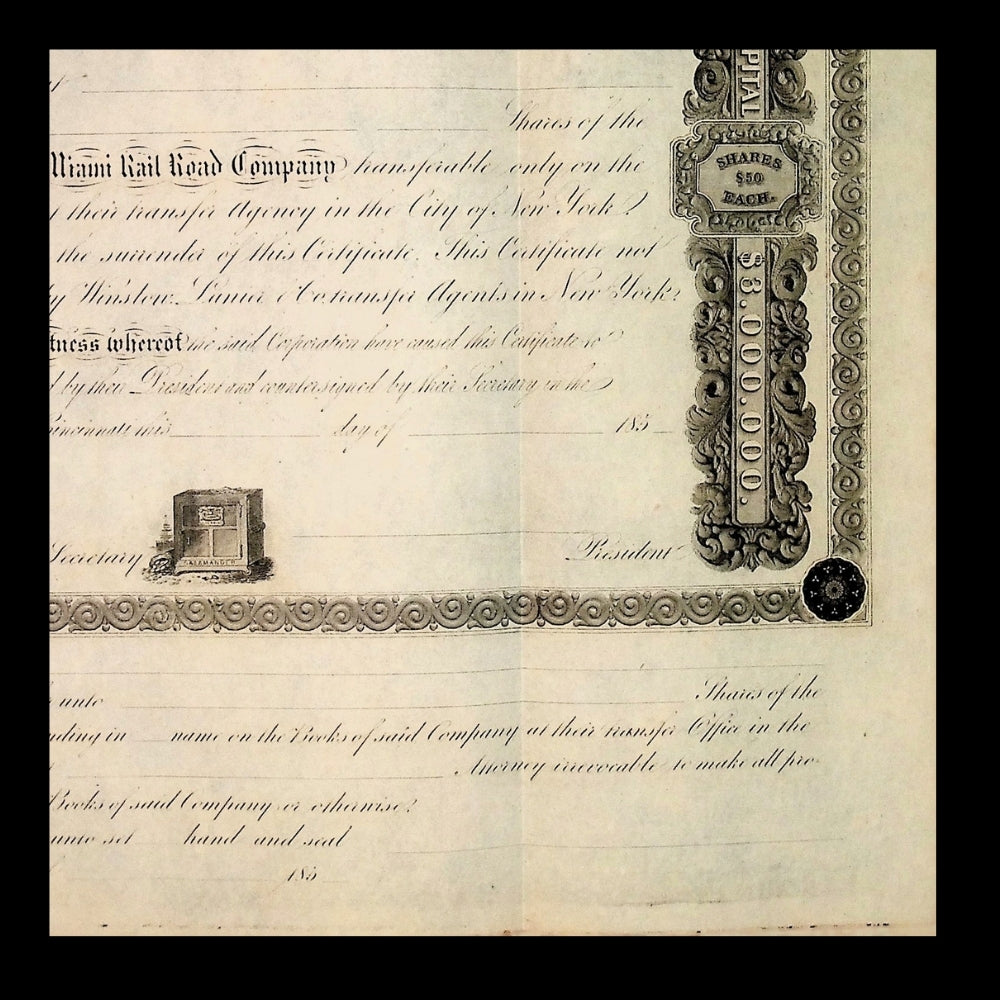 Shares of the
Miami Rail Road Company transferable only on the
their transfer Agency in the City of New York
the surrender of this Certificate. This Certificate not
by Winslow. Lanier & Co. transfer Agents in New York.
tness whereof the said Corporation have caused this Certificate to
d by their President and countersigned by their Secretary in the
Cincinnati this day of 185
Secretary
SALAMANDER
President
PITAL
SHARES
$50
EACH.
$3.000.000.
unto Shares of the
nding in name on the Books of said Company at their transfer Office in the
Attorney irrevocable to make all pro-
Books of said Company or otherwise.
unto set hand and seal
185